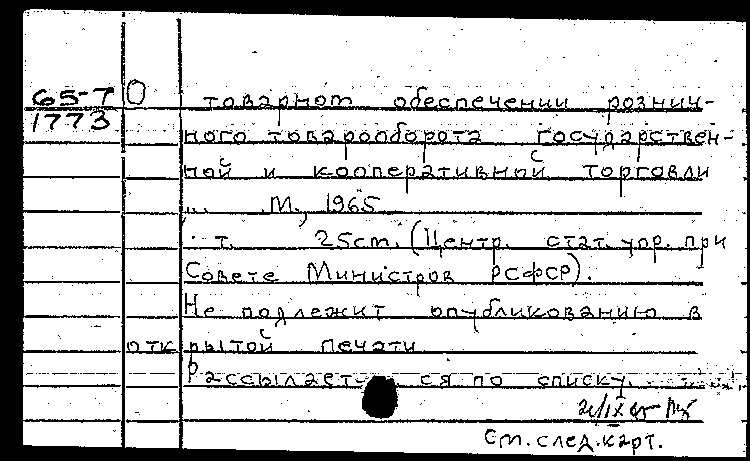 65-7 О товарном обеспечении рознич-
1773 ного товарооборота государствен-
ной и кооперативной торговли
... М., 1965
. т. 25см. (Центр. стат. упр. при
Совете Министров РСФСР).
Не подлежит опубликованию в
открытой печати
Рассылает- ся по списку.
См. след. карт.